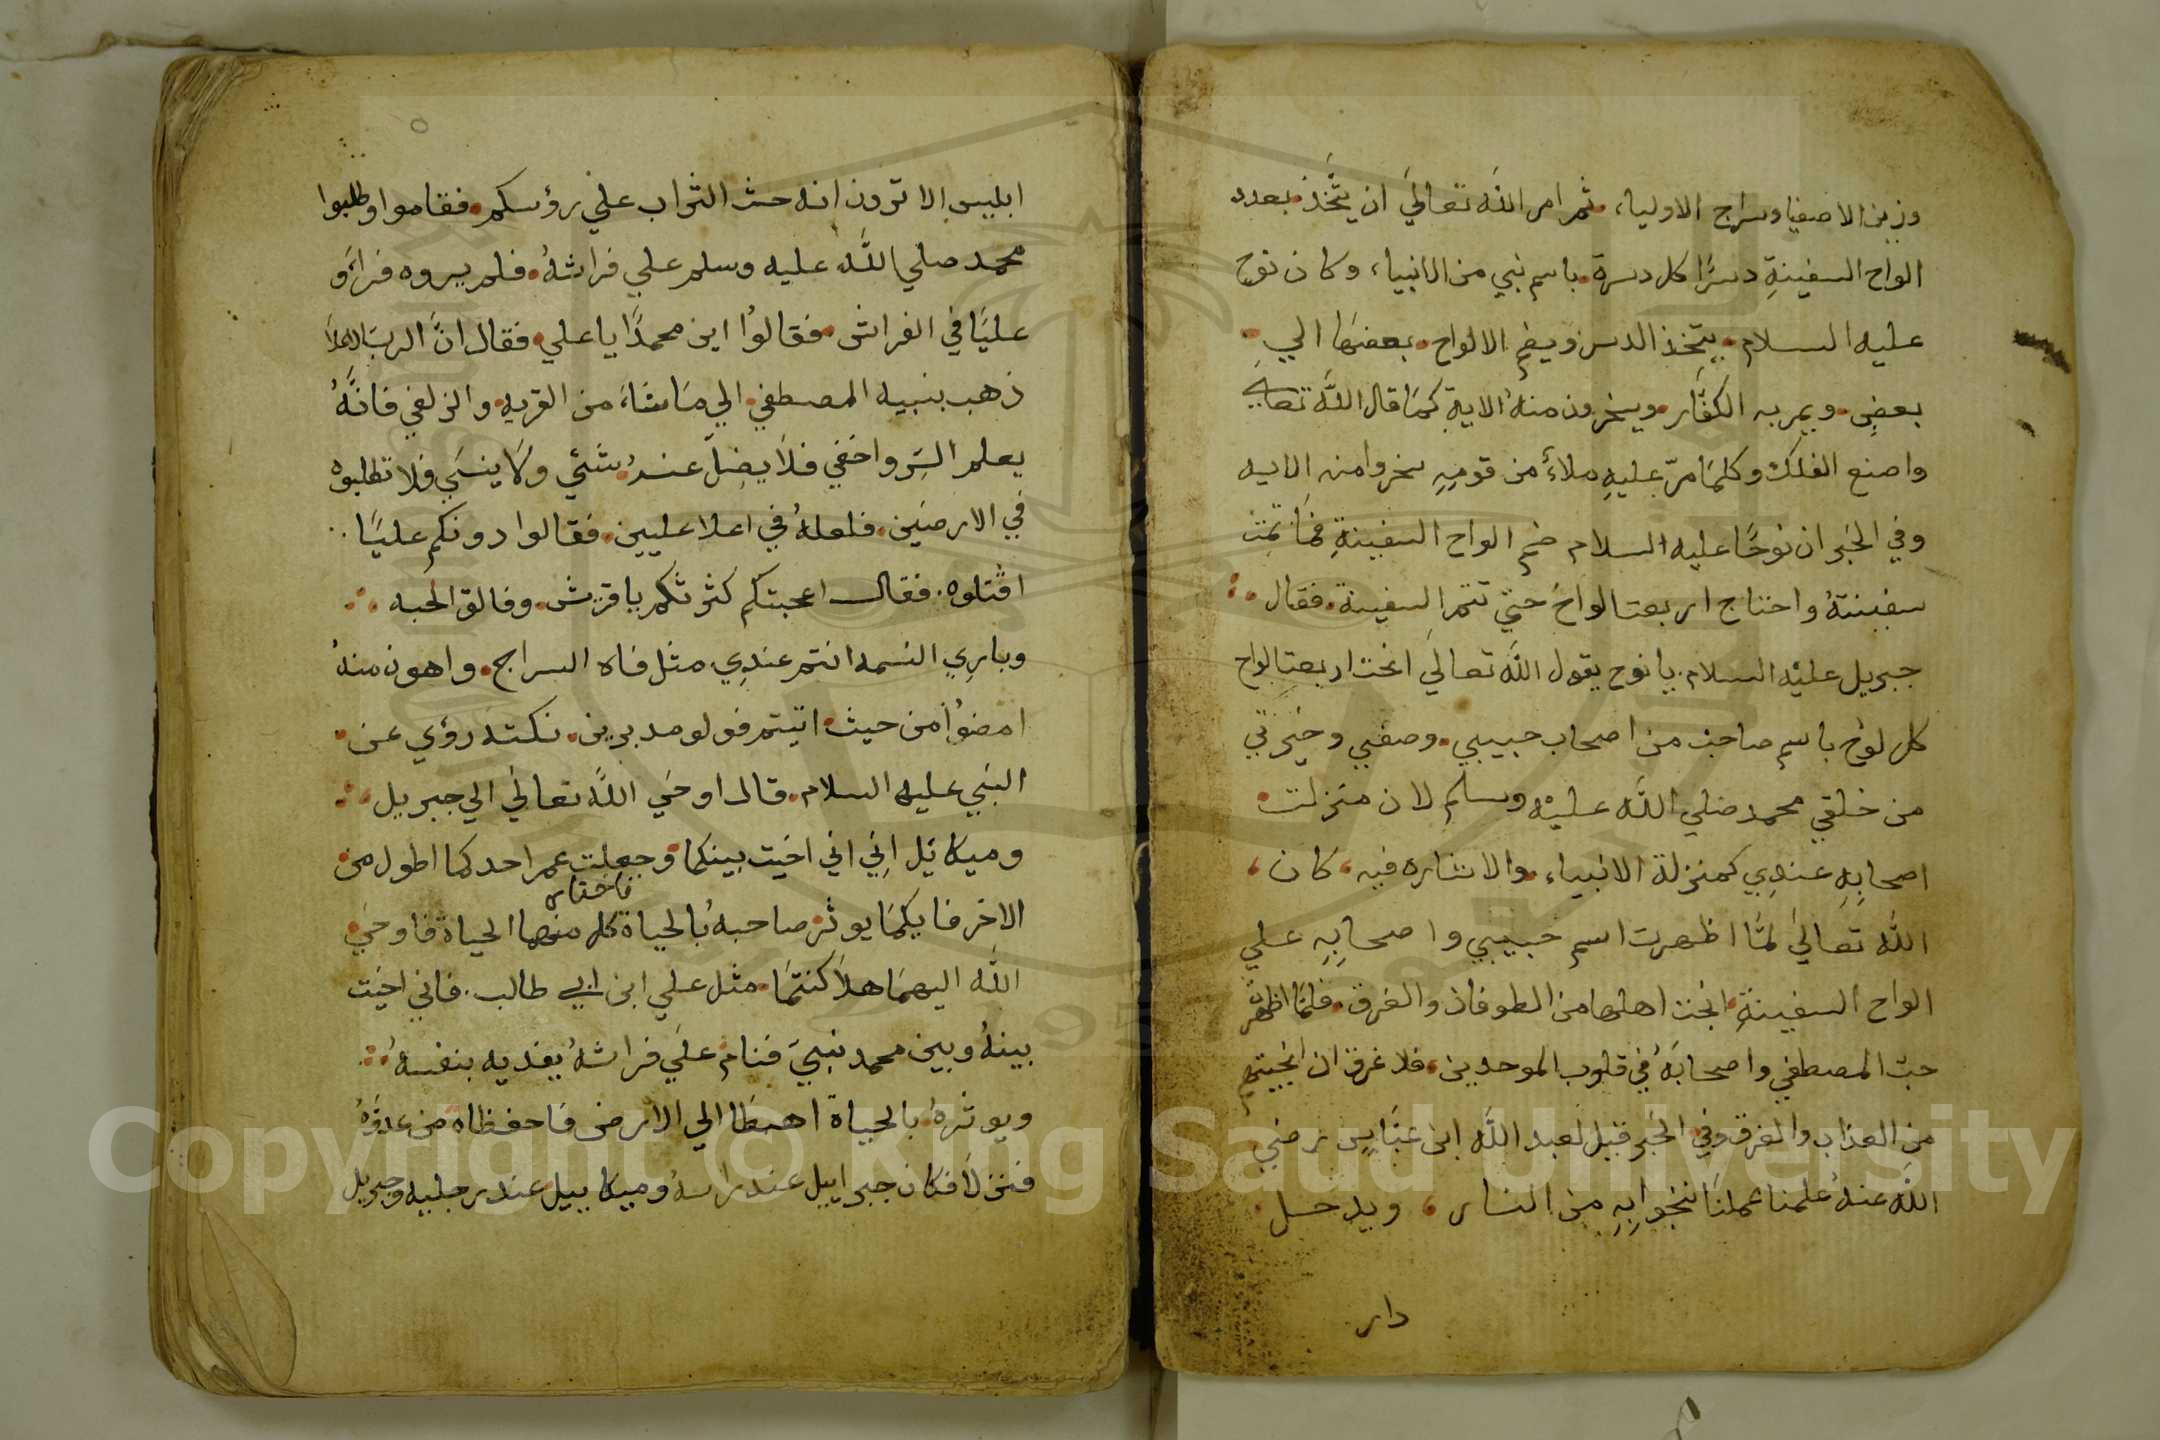 وزين الاصفيا وسراج الاولياء ثم امر الله تعالي ان يتخذ بعدد
الواح السفينة دسرا كل دسرة باسم نبي من الانبياء وكان نوح
عليه السلام يتخذ الدسر ويضم الالواح بعضها الي
بعض ويمر به الكفار ويسخرون منه الاية كما قال الله تعالي
واصنع الفلك وكلما مر عليه ملاء من قومه سخروا منه الايه
وفي الخبر ان نوحا عليه السلام ضم الواح السفينة فما تمت
سفينته واحتاج اربعت الواح حتي تتم السفينة فقال
جبريل عليه السلام يا نوح يقول الله تعالي انحت اربعت الواح
كل لوح باسم صاحب من اصحاب حبيبي وصفيي وخيرتي
من خلقي محمد صلي الله عليه وسلم لان منزلت
اصحابه عندي كمنزلة الانبياء والاشاره فيه كان
الله تعالي لما اظهرت اسم حبيبي واصحابه علي
الواح السفينة انجت اهلها من الطوفان والغرق فلما اظهرت
حب المصطفي واصحابه في قلوب الموحدين فلا غرو ان انجيتهم
من العذاب والغرق وفي الخبر قيل لعبد الله ابن عباس رضي
الله عنه علمنا عملا ننجوا به من النار ويدخل
دار
ابليس الا ترون انه حث التراب علي رؤسكم فقاموا وطلبوا
محمد صلي الله عليه وسلم علي فراشه فلم يروه فراو
عليا في الفراش فقالوا اين محمدا يا علي فقال ان الرب الاعلا
ذهب بنبيه المصطفي الي ما شاء من القربه والزلفي فانه
يعلم السر واخفي فلا يضل عنده شئي ولا ينسي فلا تطلبوه
في الارضين فلعله في اعلا عليين فقالوا دونكم عليا
اقتلوه فقال اعجبتكم كثرتكم يا قريش وفالق الحبه
وباري النسمه انتم عندي مثل فاه السراج واهون منه
امضوا من حيث اتيتم فولو مدبرين نكتة رؤي عن
النبي عليه السلام قال اوحي الله تعالي الي جبريل
وميكائل اني اني اخيت بينكما وجعلت عمر احدكما اطول من
فاختار
الاخر فايكما يوثر صاحبه بالحياة كل منهما الحياة فاوحي
الله اليهما هلا كنتما مثل علي ابن ابي طالب فاني اخيت
بينه وبين محمد نبيي فنام علي فراشه يفديه بنفسه
ويوثره بالحياة اهبطا الي الارض فاحفظاه من عدوه
فنزلا فكان جبراييل عند راسه وميكاييل عند رجليه وجبريل
Copyright © King Saud University